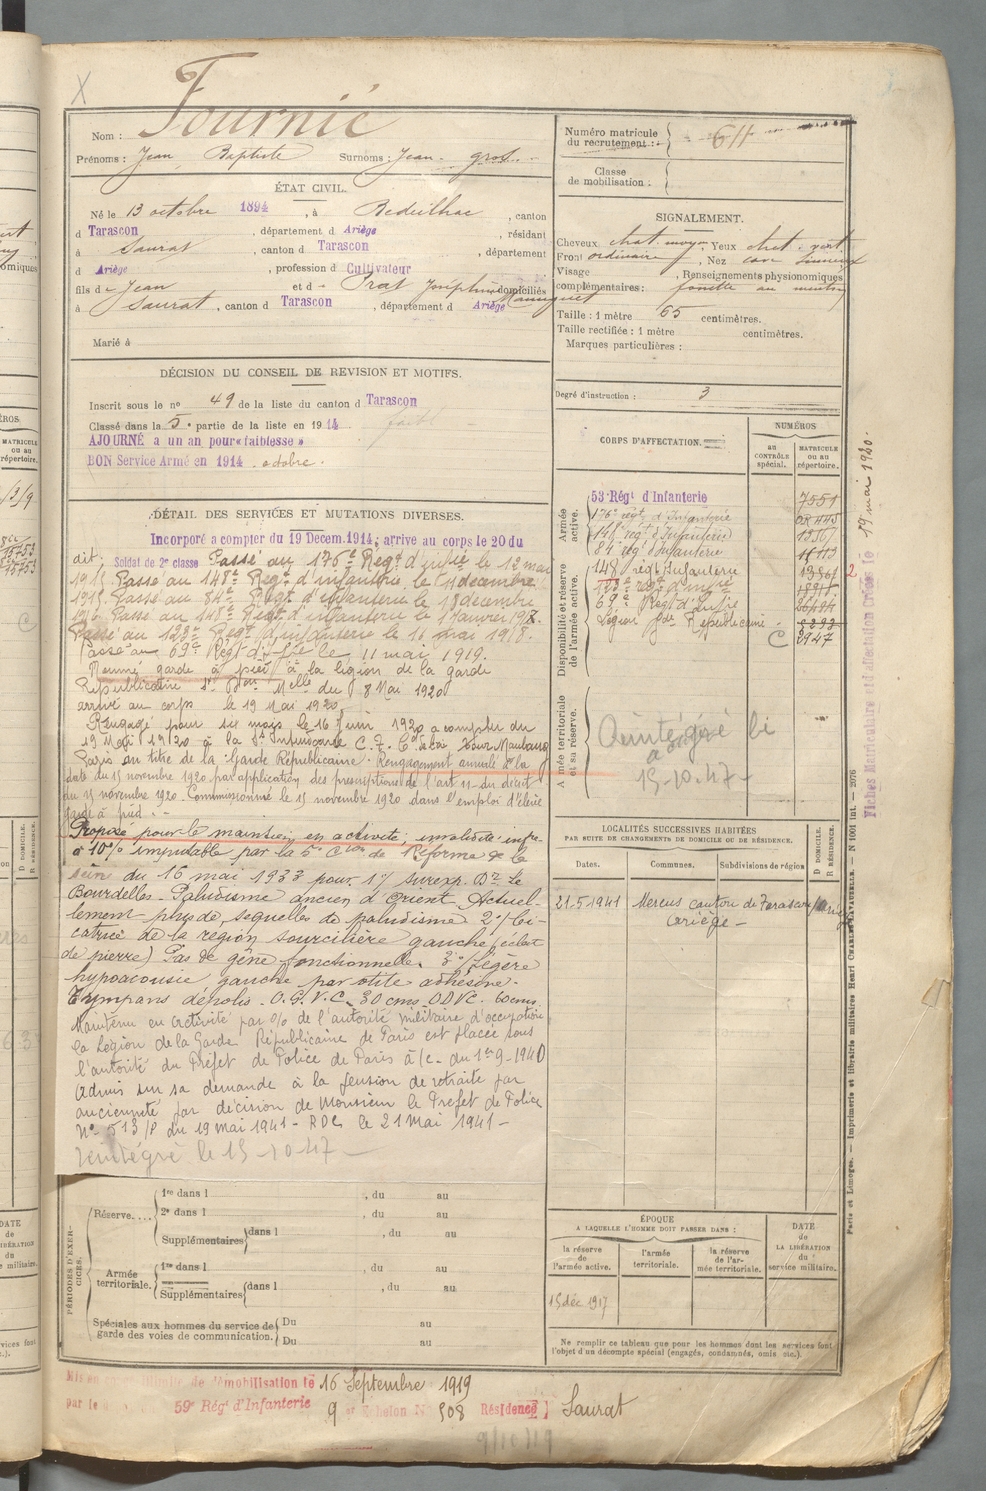 X
Nom : Fournié
Prénoms : Jean Baptiste Surnoms : Jean-gros
ÉTAT CIVIL.
Né le 13 octobre 1894, à Bedeilhac, canton
d Tarascon, département d Ariège, résidant
à Saurat, canton d Tarascon, département
d Ariège, profession d Cultivateur
fils de Jean et de Prat Joséphine Mauriquet domiciliés
à Saurat, canton d Tarascon, département d Ariège
Marié à
DÉCISION DU CONSEIL DE REVISION ET MOTIFS.
Inscrit sous le no 49 de la liste du canton d Tarascon
Classé dans la 5e partie de la liste en 1914 faible
AJOURNÉ à un an pour « faiblesse »
BON Service Armé en 1914 octobre.
DÉTAIL DES SERVICES ET MUTATIONS DIVERSES.
Incorporé a compter du 19 Decem. 1914; arrive au corps le 20 du
dit; Soldat de 2e classe Passé au 176e Regt d'infie le 12 mai
1915. Passé au 148e Regt d'infanterie le 1 décembre
1915. Passé au 84e Regt d'infanterie le 18 decembre
1916. Passé au 148e Regt d'infanterie le 1 Janvier 1917.
Passé au 123e Regt d'infanterie le 16 mai 1918.
Passé au 69e Regt d'Infie le 11 mai 1919.
Nommé garde à pied à la légion de la garde
Républicaine St Don Melle du 8 Mai 1920
arrivé au corps le 19 Mai 1920
Rengagé pour six mois le 16 Juin 1920 a compter du
19 Mai 1920 à la St Intendance C.F. Latour Maubourg
Paris au titre de la Garde Républicaine. Rengagement annulé à la
date du 15 novembre 1920 par application des prescriptions de l'art 11 du décret
du 15 novembre 1920. Commissionné le 15 novembre 1920 dans l'emploi d'élève
garde à pied.
Proposé pour le maintien en activité, invalidité infre
à 10% imputable par la 5e Cion de Réforme de la
Seine du 16 mai 1933 pour 1°/ surexp. Dr Le
Bourdelles. Paludisme ancien d'Orient. Actuel-
lement plus de sequelles de paludisme. 2°/ Ci-
catrice de la région sourcilière gauche (éclat
de pierre) Pas de gêne fonctionnelle. 3°/ Légère
hypoacousie gauche par otite adhésive.
Tympans dépolis. O.G.V.C. 30 cms. O.D.V.C. 60 cms.
Maintenu en activité par o/o de l'autorité militaire d'occupation
la Légion de la Garde Républicaine de Paris est placée sous
l'autorité du Préfet de Police de Paris à/c. du 1er 9-1940
Admis sur sa demande à la pension de retraite par
ancienneté par décision de Monsieur le Prefet de Police
No 513/P du 19 mai 1941 - RDC le 21 Mai 1941 -
Réintégré le 15-10-47
PÉRIODES D'EXERCICES.
Réserve.... 1re dans l , du au
2e dans l , du au
Supplémentaires dans l , du au
Armée territoriale. 1re dans l , du au
Supplémentaires dans l , du au
Spéciales aux hommes du service de garde des voies de communication. Du au
Du au
Mis en congé illimité de démobilisation le 16 Septembre 1919
par le 59e Régt d'Infanterie 9e Echelon No 508 Résidence Saurat
9/10/19
Numéro matricule du recrutement : 611
Classe de mobilisation :
SIGNALEMENT.
Cheveux chat. moyen Yeux chat. vert
Front ordinaire, Nez cave sinueux
Visage , Renseignements physionomiques
complémentaires : fossette au menton
Taille : 1 mètre 65 centimètres.
Taille rectifiée : 1 mètre centimètres.
Marques particulières :
Degré d'instruction : 3
CORPS D'AFFECTATION.
NUMÉROS
au CONTRÔLE spécial.
MATRICULE ou au répertoire.
Armée active.
53 Régt d'Infanterie 7551
176e régt d'Infanterie
148e régt d'Infanterie 12507
84 régt d'Infanterie
Disponibilité et réserve de l'armée active.
148 régt Infanterie
123e régt d'Infie
69e Régt d'Infie
Légion Gde Républicaine 5293
C 2947
Armée territoriale et sa réserve.
Réintégré
15-10-47
LOCALITÉS SUCCESSIVES HABITÉES
PAR SUITE DE CHANGEMENTS DE DOMICILE OU DE RÉSIDENCE.
Dates. Communes. Subdivisions de région
D DOMICILE. R RÉSIDENCE.
21.5.1941 Mercus canton de Tarascon Ariège
Ariège
ÉPOQUE
A LAQUELLE L'HOMME DOIT PASSER DANS :
la réserve de l'armée active.
l'armée territoriale.
la réserve de l'armée territoriale.
DATE de LA LIBÉRATION du service militaire.
15 déc 1917
Ne remplir ce tableau que pour les hommes dont les services font
l'objet d'un décompte spécial (engagés, condamnés, omis etc.).
Fiches Matriculaire et d'affectation Créées le 19 mai 1920.
Paris et Limoges. — Imprimerie et librairie militaires Henri CHARLES-LAVAUZELLE. — N 1001 Int. — 2076